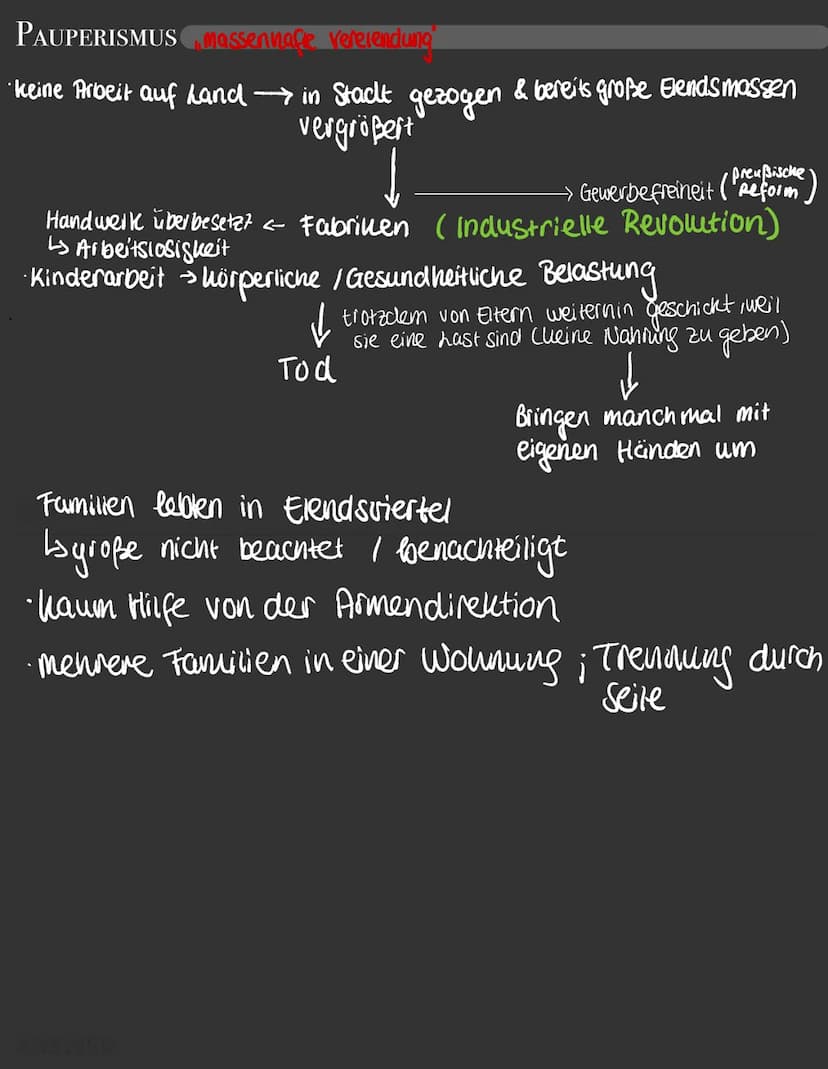 PAUPERISMUS "massenhafte Verelendung"
· keine Arbeit auf Land → in Stadt gezogen & bereits große Elendsmassen
vergrößert
→ Gewerbefreiheit (preußische Reform)
Handwerk überbesetzt ← Fabriken (Industrielle Revolution)
↳ Arbeitslosigkeit
· Kinderarbeit → körperliche / Gesundheitliche Belastung
trotzdem von Eltern weiterhin geschickt, weil
sie eine Last sind (keine Nahrung zu geben)
Tod
Bringen manchmal mit
eigenen Händen um
Familien leben in Elendsviertel
↳ große nicht beachtet / benachteiligt
· kaum Hilfe von der Armendirektion
· mehrere Familien in einer Wohnung ; Trennung durch
Seile